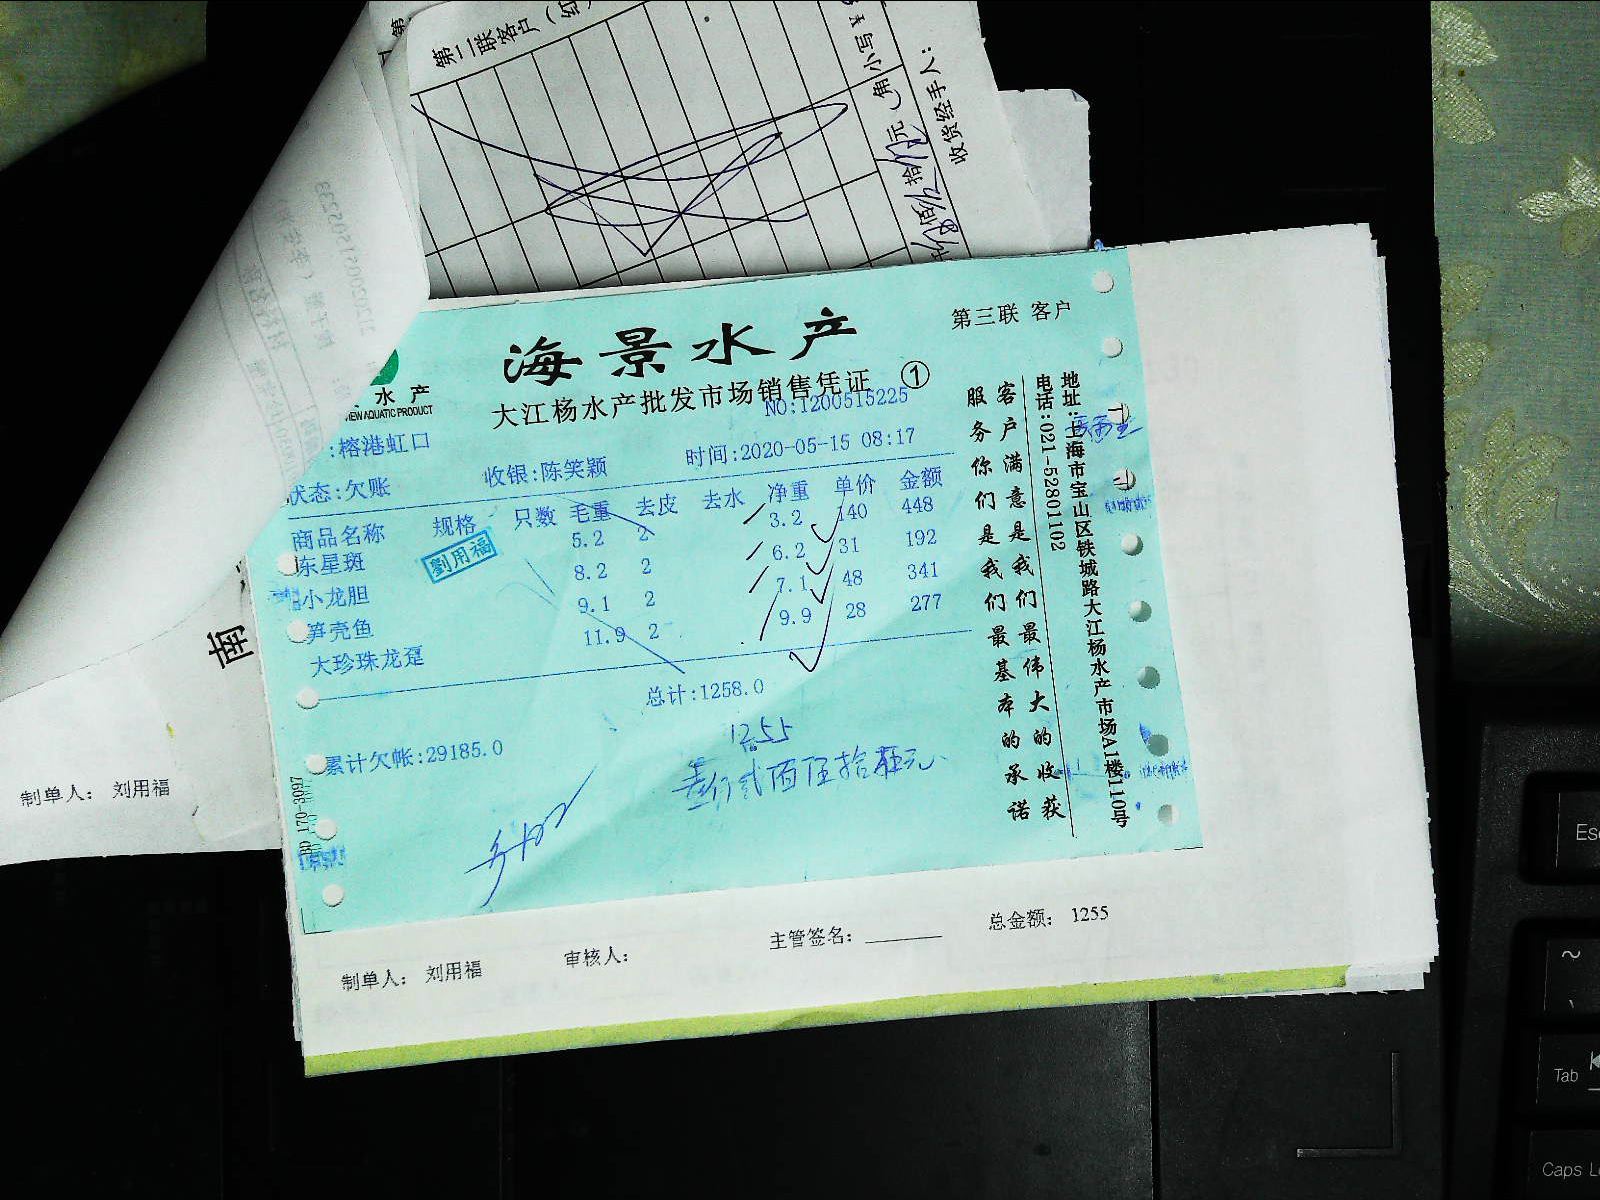 第二联客户（红
小写￥
元（角
收货经手人：
拾
海景水产
第三联 客户
大江杨水产批发市场销售凭证 ①
水产
VIEW AQUATIC PRODUCT
NO:1200515225
:榕港虹口
收银:陈笑颖
时间:2020-05-15 08:17
状态:欠账
商品名称 规格 只数 毛重 去皮 去水 净重 单价 金额
东星斑 5.2 2 3.2 140 448
小龙胆 8.2 2 6.2 31 192
笋壳鱼 9.1 2 7.1 48 341
大珍珠龙趸 11.9 2 9.9 28 277
劉用福
总计:1258.0
累计欠帐:29185.0
1255
壹仟贰佰伍拾伍元
客户满意是我们最伟大的收获
服务你们是我们最基本的承诺
地址:上海市宝山区铁城路大江杨水产市场A1楼110号
电话:021-52801102
BD 170-3097
南
制单人： 刘用福
制单人： 刘用福
审核人：
主管签名：
总金额： 1255
Esc
~
Tab
Caps L